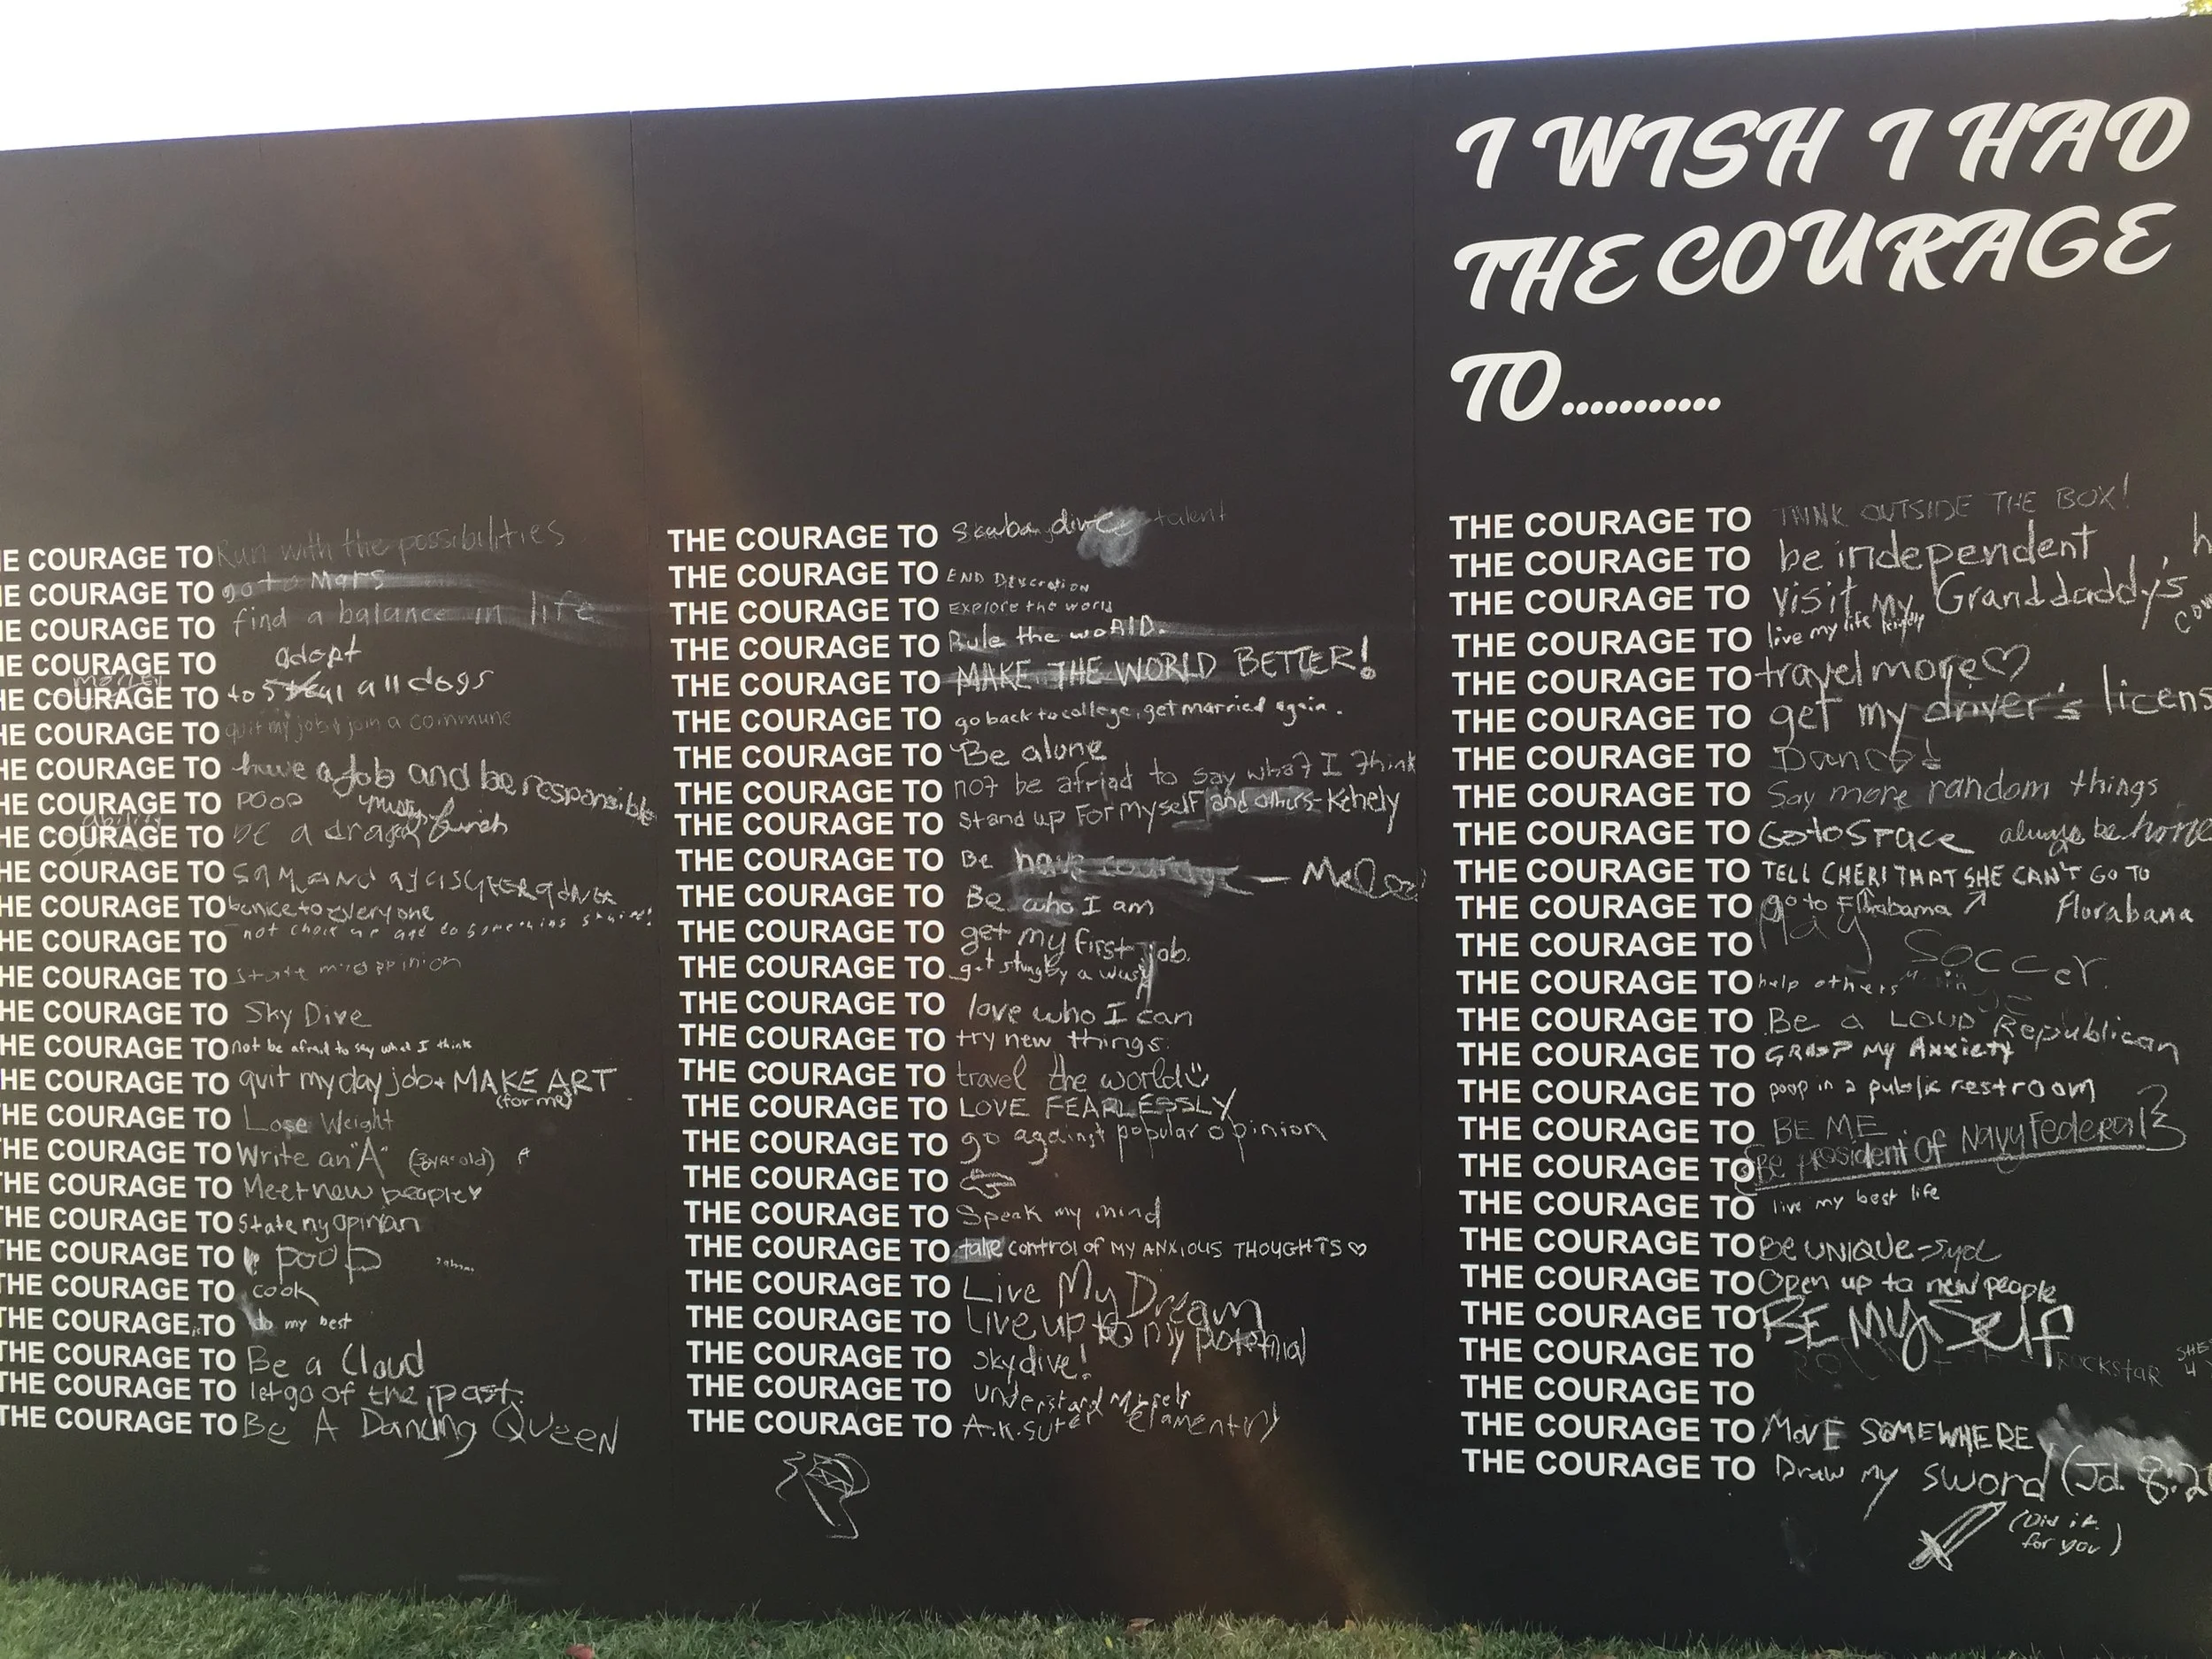 I WISH I HAD
THE COURAGE
TO...........
HE COURAGE TO Run with the possibilities
HE COURAGE TO go to Mars
HE COURAGE TO find a balance in life
HE COURAGE TO adopt
HE COURAGE TO to steal all dogs
HE COURAGE TO quit my job & join a commune
HE COURAGE TO have a job and be responsible
HE COURAGE TO poop
HE COURAGE TO be a dragon
HE COURAGE TO
HE COURAGE TO be nice to everyone
HE COURAGE TO not choke up and do something stupid!
HE COURAGE TO state my opinion
HE COURAGE TO Sky Dive
HE COURAGE TO not be afraid to say what I think
HE COURAGE TO quit my day job + MAKE ART
(for me)
THE COURAGE TO Lose Weight
THE COURAGE TO Write an "A" (3 year old) A
THE COURAGE TO Meet new people
THE COURAGE TO State my opinian
THE COURAGE TO poop
THE COURAGE TO cook
THE COURAGE TO do my best
THE COURAGE TO Be a Cloud
THE COURAGE TO let go of the past.
THE COURAGE TO Be A Dancing QUEEN
THE COURAGE TO Scuba dive talent
THE COURAGE TO END
THE COURAGE TO Explore the world
THE COURAGE TO Rule the woRlD.
THE COURAGE TO MAKE THE WORLD BETTER!
THE COURAGE TO go back to college, get married again.
THE COURAGE TO Be alone
THE COURAGE TO not be afriad to say what I think
THE COURAGE TO stand up For myself and others - Kehely
THE COURAGE TO Be have courage
THE COURAGE TO Be who I am
THE COURAGE TO get my first job.
THE COURAGE TO get stung by a wasp
THE COURAGE TO love who I can
THE COURAGE TO try new things.
THE COURAGE TO travel the world
THE COURAGE TO LOVE FEARLESSLY
THE COURAGE TO go against popular opinion
THE COURAGE TO
THE COURAGE TO Speak my mind
THE COURAGE TO take control of MY ANXIOUS THOUGHTS ♡
THE COURAGE TO Live My Dream
THE COURAGE TO Live up to my potential
THE COURAGE TO skydive!
THE COURAGE TO understand Myself
THE COURAGE TO A.K. Suter Elamentiry
THE COURAGE TO THINK OUTSIDE THE BOX!
THE COURAGE TO be independent
THE COURAGE TO visit My Granddaddy's
THE COURAGE TO live my life
THE COURAGE TO travel more ♡
THE COURAGE TO get my driver's licens
THE COURAGE TO Dance
THE COURAGE TO Say more random things
THE COURAGE TO Go to Space always be
THE COURAGE TO TELL CHERI THAT SHE CAN'T GO TO
THE COURAGE TO go to Florabama Florabama
THE COURAGE TO Play Soccer.
THE COURAGE TO help others
THE COURAGE TO Be a LOUD Republican
THE COURAGE TO GRASP MY Anxiety
THE COURAGE TO poop in a public restroom
THE COURAGE TO BE ME
THE COURAGE TO Be president of Navy Federal
THE COURAGE TO live my best life
THE COURAGE TO Be UNIQUE - Syd
THE COURAGE TO Open up to new people
THE COURAGE TO BE MySelf
THE COURAGE TO ROCKSTAR
THE COURAGE TO
THE COURAGE TO MOVE SOMEWHERE
THE COURAGE TO Draw my sword (Jd. 8:2
(Did it
for you)